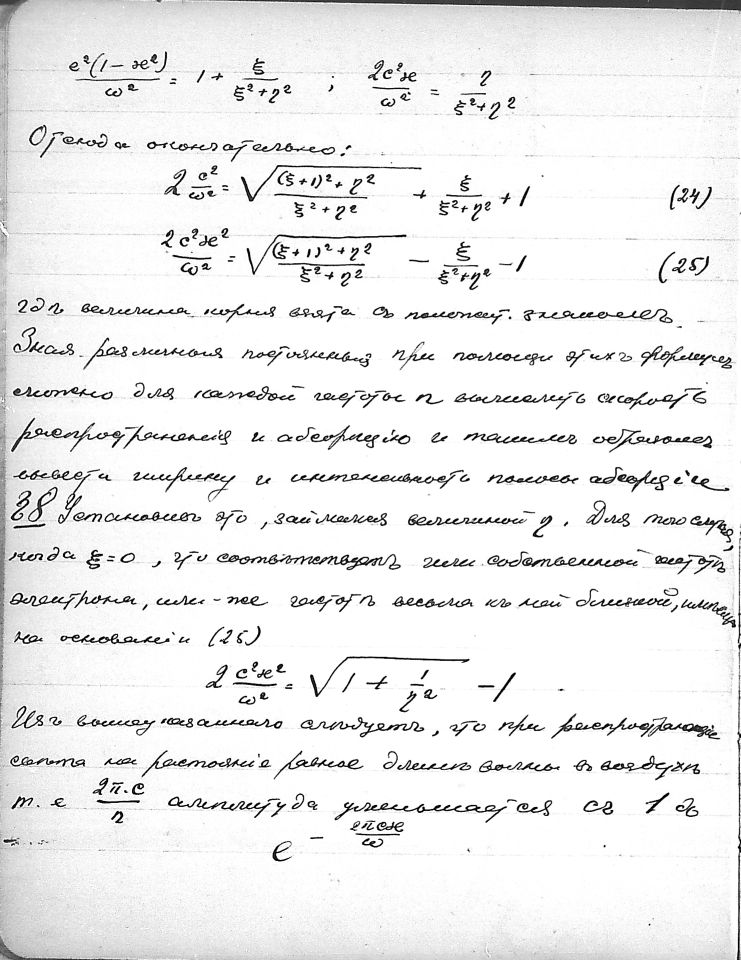 e²(1-ϰ²)/ω² = 1 + ξ/(ξ²+η²) ; 2c²ϰ/ω² = η/(ξ²+η²)
Отсюда окончательно:
2 c²/ω² = √((ξ+1)²+η²)/(ξ²+η²) + ξ/(ξ²+η²) + 1 (24)
2c²ϰ²/ω² = √((ξ+1)²+η²)/(ξ²+η²) - ξ/(ξ²+η²) - 1 (25)
гдѣ величина корня взята съ положит. знакомъ.
Зная различныя постоянныя при помощи этихъ формулъ
можно для каждой частоты n вычислить скорость
распространенія и абсорпцію и такимъ образомъ
вывести ширину и интенсивность полосы абсорпціи
§8 Установивъ это, займемся величиной η. Для того случая,
когда ξ=0, что соотвѣтствуетъ или собственной частотѣ
электрона, или-же частотѣ весьма къ ней близкой, имѣемъ
на основаніи (25)
2 c²ϰ²/ω² = √(1 + 1/η²) - 1
Изъ вышеуказаннаго слѣдуетъ, что при распространеніи
свѣта на растояніе равное длинѣ волны въ воздухѣ
т.е 2π.c/n амплитуда уменьшается съ 1 до
e^(-2πcϰ/ω)